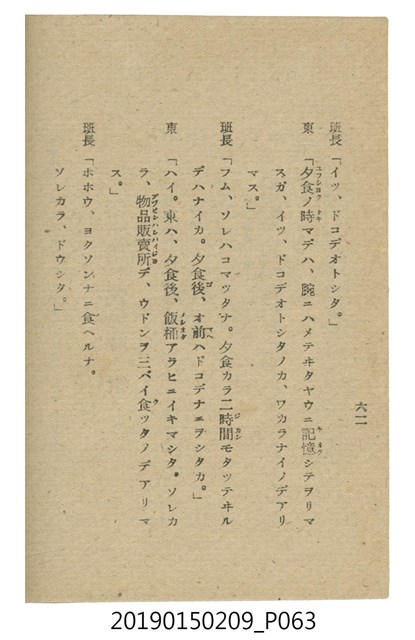 六二
班長「イツ、ドコデオトシタ。」
東「夕食ノ時マデハ、腕ニハメテヰタヤウニ記憶シテヲリマ
スガ、イツ、ドコデオトシタノカ、ワカラナイノデアリ
マス。」
班長「フム、ソレハコマツタナ。夕食カラ二時間モタツテヰル
デハナイカ。夕食後、オ前ハドコデナニヲシタカ。」
東「ハイ。東ハ、夕食後、飯桶アラヒニイキマシタ。ソレカ
ラ、物品販賣所デ、ウドンヲ三バイ食ツタノデアリマ
ス。」
班長「ホホウ、ヨクソンナニ食ヘルナ。
ソレカラ、ドウシタ。」
20190150209_P063